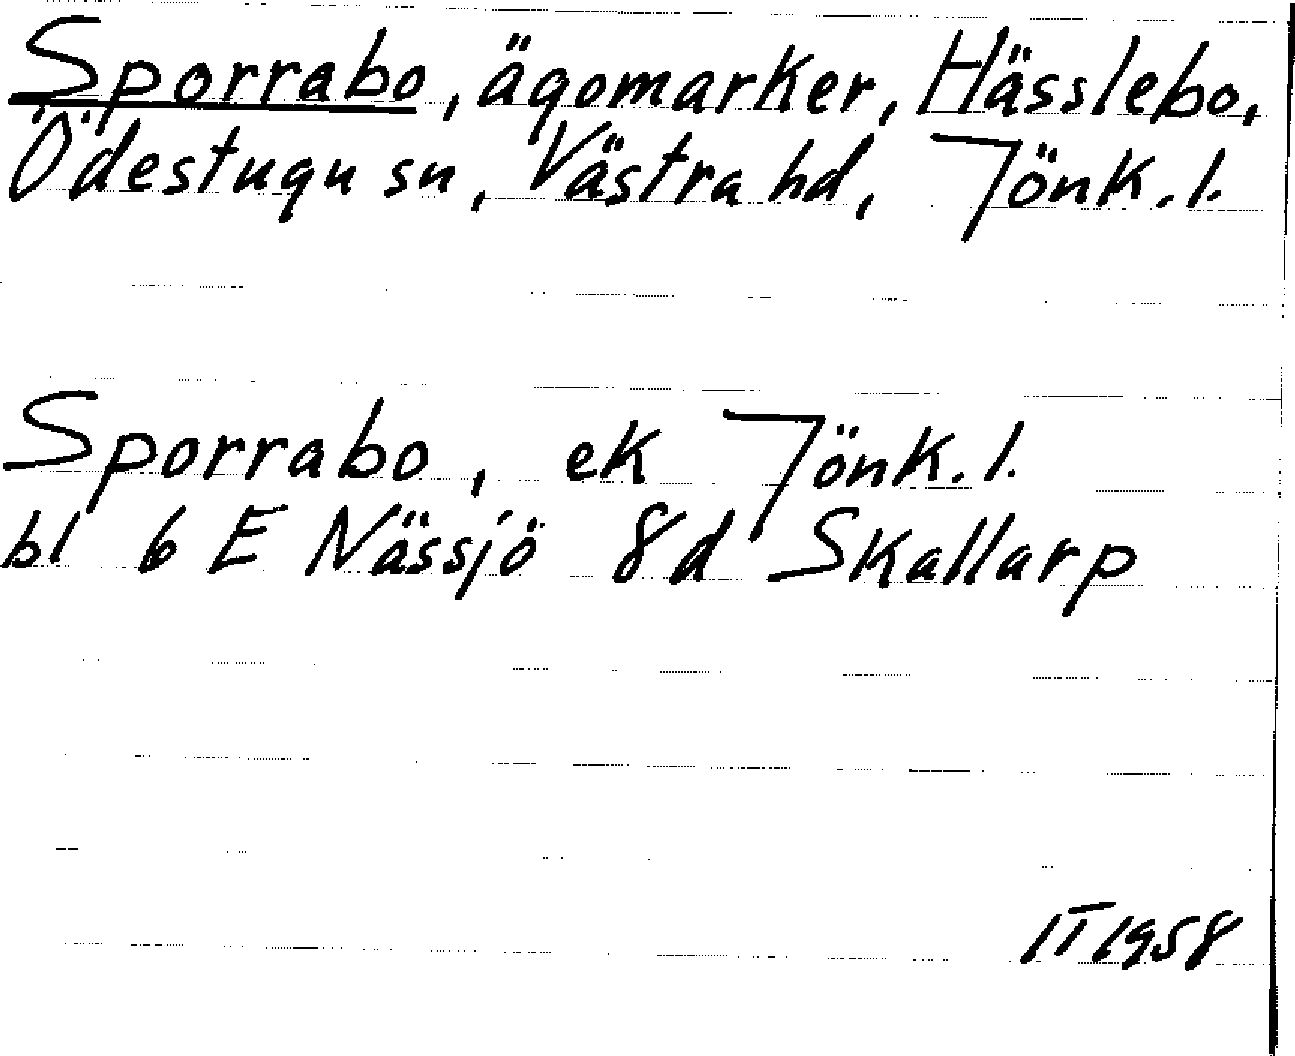 Sporrabo, ägomarker, Hässlebo,
Ödestugu sn, Västra hd, Jönk. l.
Sporrabo, ek Jönk. l.
bl 6 E Nässjö 8d Skallarp
IT 1958